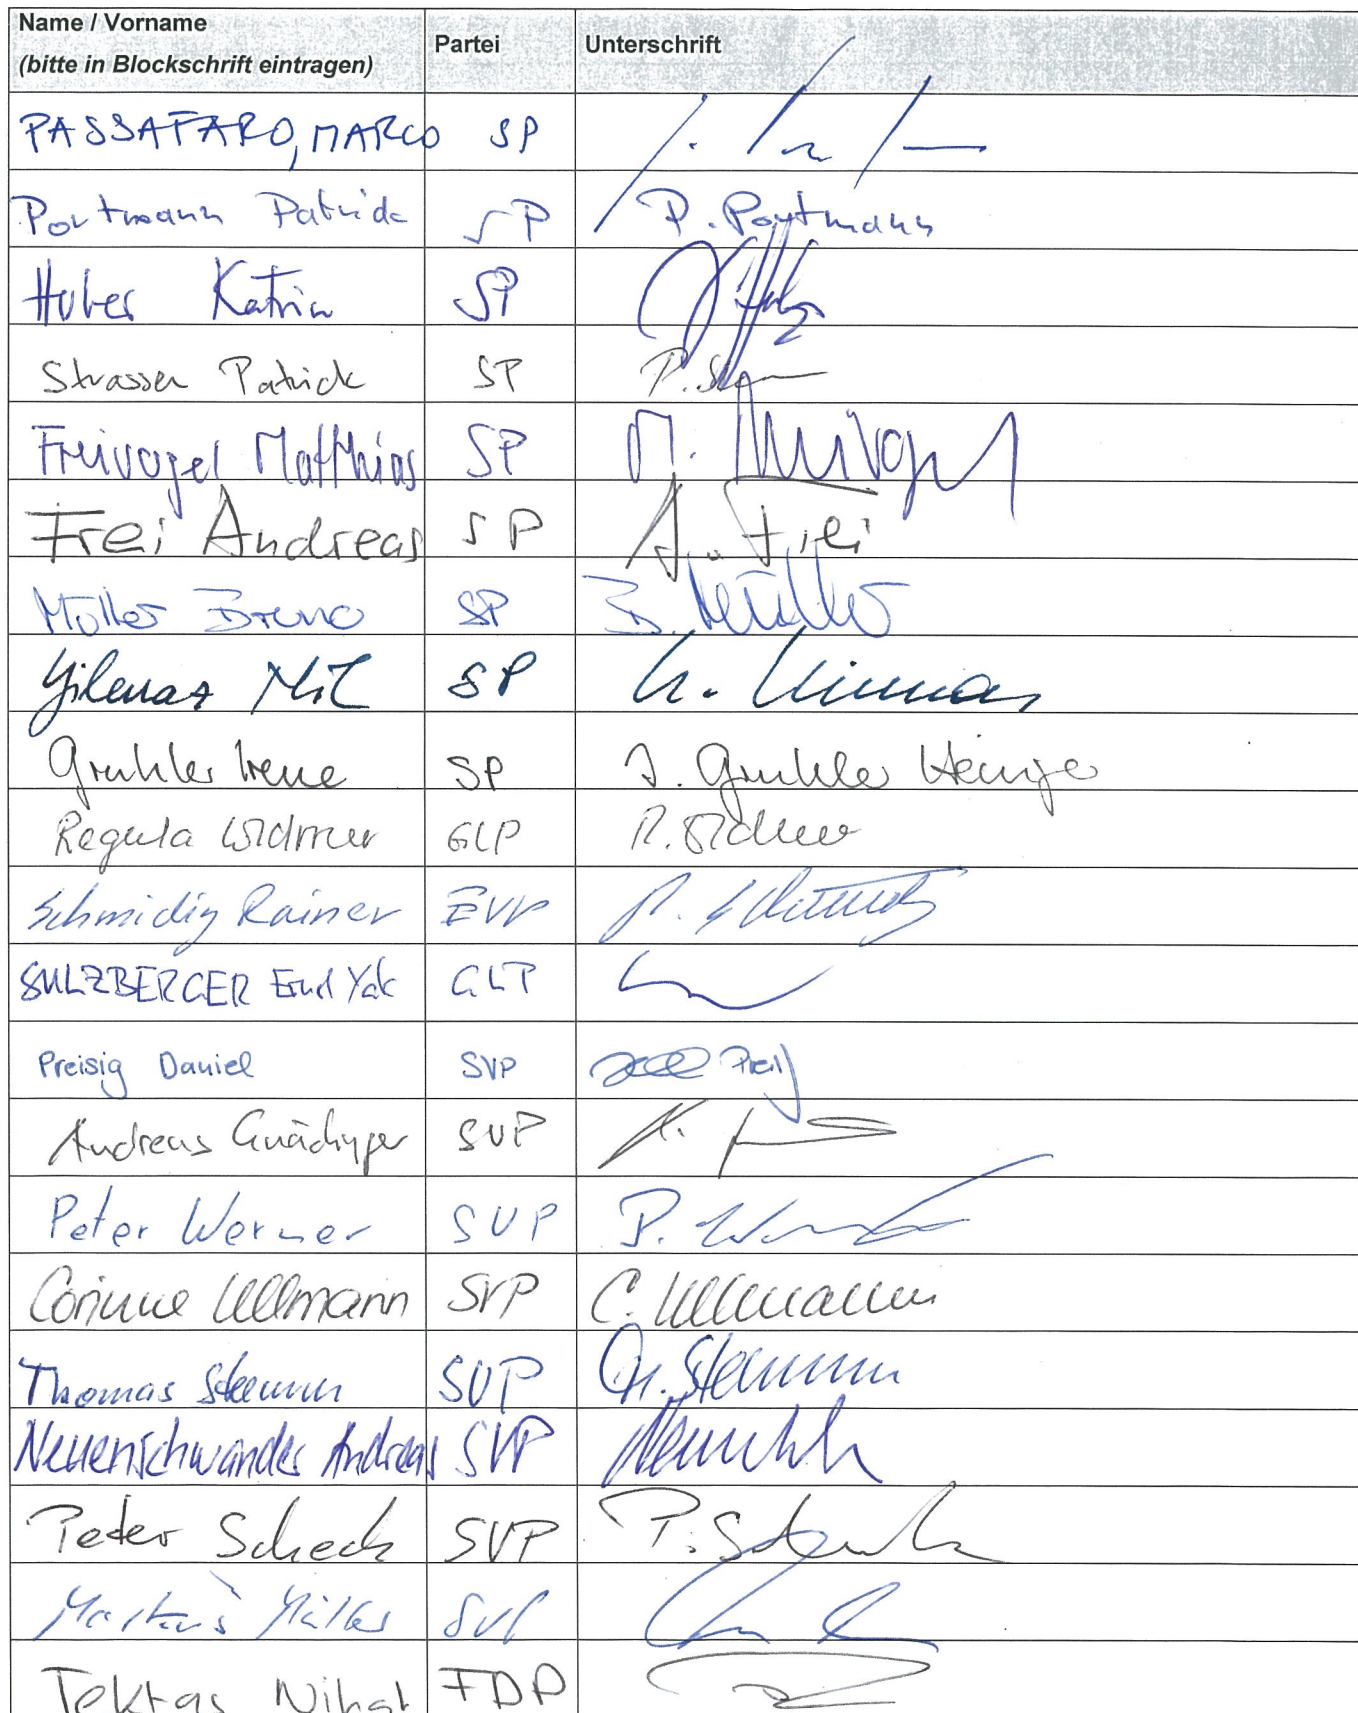 Name / Vorname Partei Unterschrift
(bitte in Blockschrift eintragen)
PASSAFARO, MARCO SP
Portmann Patrick SP P. Portmann
Huber Katrin SP
Strasser Patrick SP
Freivogel Matthias SP M. Freivogel
Frei Andreas SP A. Frei
Müller Bruno SP B. Müller
Yilmaz SP
Gruhler Irene SP I. Gruhler Heinzer
Regula Widmer GLP R. Widmer
Schmidig Rainer EVP R. Schmidig
SULZBERGER GLP
Preisig Daniel SVP
Andreas Gnädinger SVP
Peter Werner SVP P. Werner
Corinne Ullmann SVP C. Ullmann
Thomas Stamm SVP Th. Stamm
Neuenschwander Andreas SVP
Peter Scheck SVP P. Scheck
Markus Müller SVP
Tektas Nihat FDP